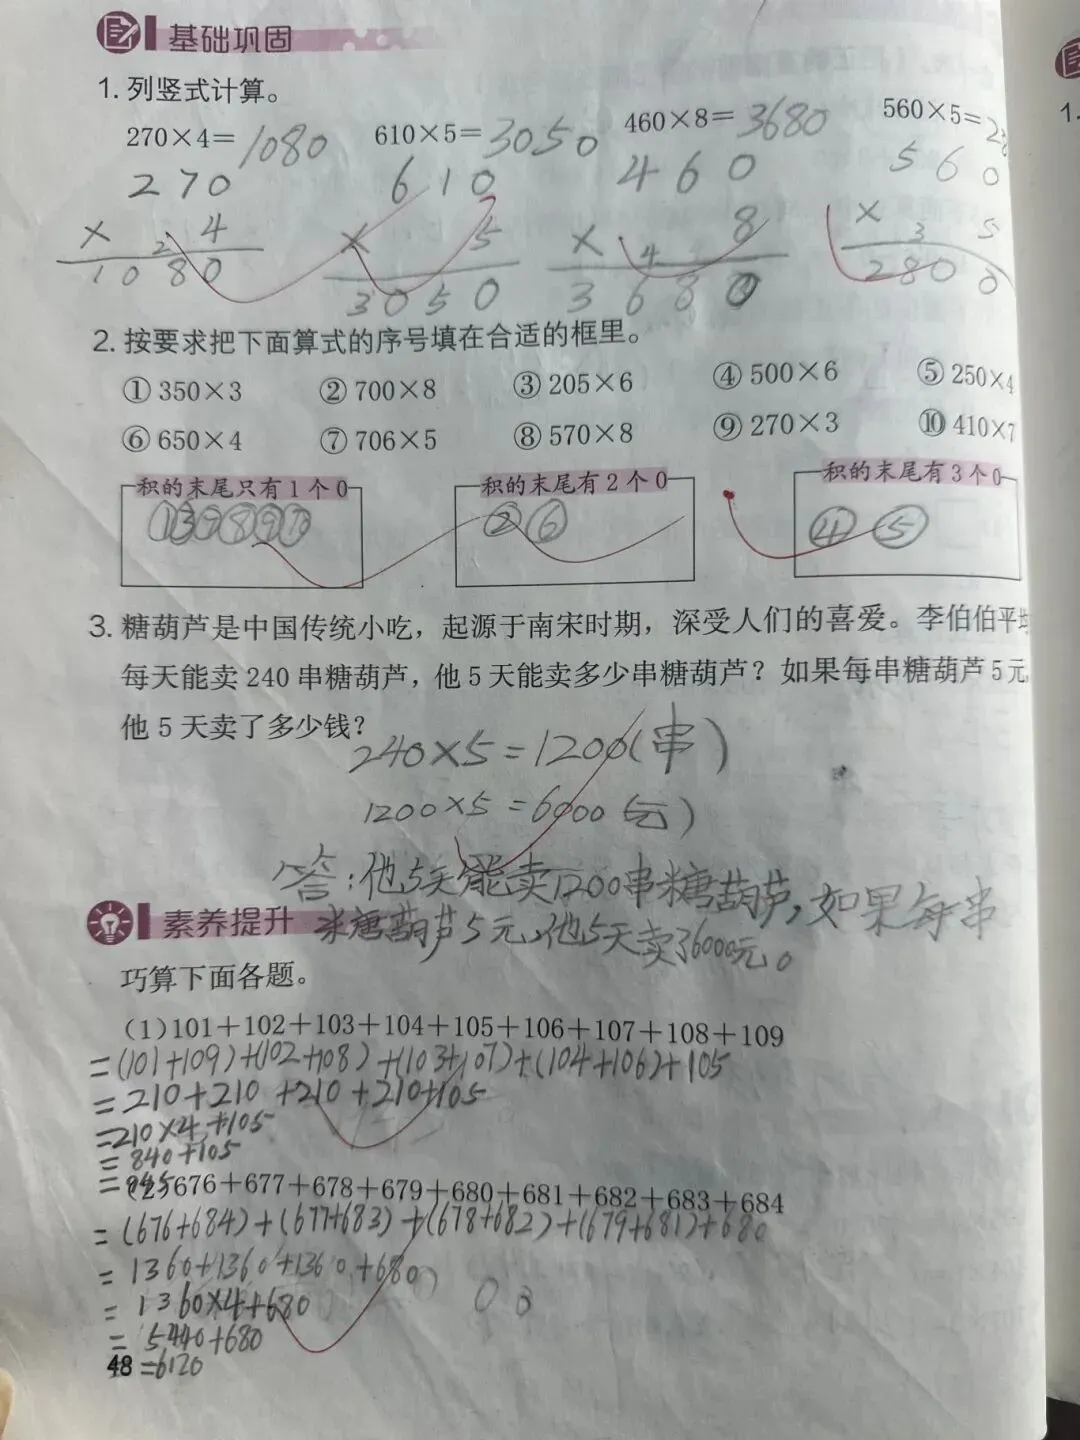 基础巩固
1. 列竖式计算。
270×4=1080 610×5=3050 460×8=3680 560×5=28
270 610 460 560
× 2 4 × 5 × 4 8 × 3 5
1080 3050 3680 2800
2. 按要求把下面算式的序号填在合适的框里。
① 350×3 ② 700×8 ③ 205×6 ④ 500×6 ⑤ 250×4
⑥ 650×4 ⑦ 706×5 ⑧ 570×8 ⑨ 270×3 ⑩ 410×7
积的末尾只有1个0 积的末尾有2个0 积的末尾有3个0
①③⑦⑧⑨⑩ ②⑥ ④⑤
3. 糖葫芦是中国传统小吃，起源于南宋时期，深受人们的喜爱。李伯伯平均
每天能卖 240 串糖葫芦，他 5 天能卖多少串糖葫芦？如果每串糖葫芦 5 元，
他 5 天卖了多少钱？
240×5=1200(串)
1200×5=6000(元)
答:他5天能卖1200串糖葫芦,如果每串
糖葫芦5元,他5天卖了6000元。
素养提升
巧算下面各题。
(1)101+102+103+104+105+106+107+108+109
=(101+109)+(102+108)+(103+107)+(104+106)+105
=210+210+210+210+105
=210×4+105
=840+105
=945
(2)676+677+678+679+680+681+682+683+684
=(676+684)+(677+683)+(678+682)+(679+681)+680
=1360+1360+1360+680
=1360×4+680
=5440+680
=6120
48
1.